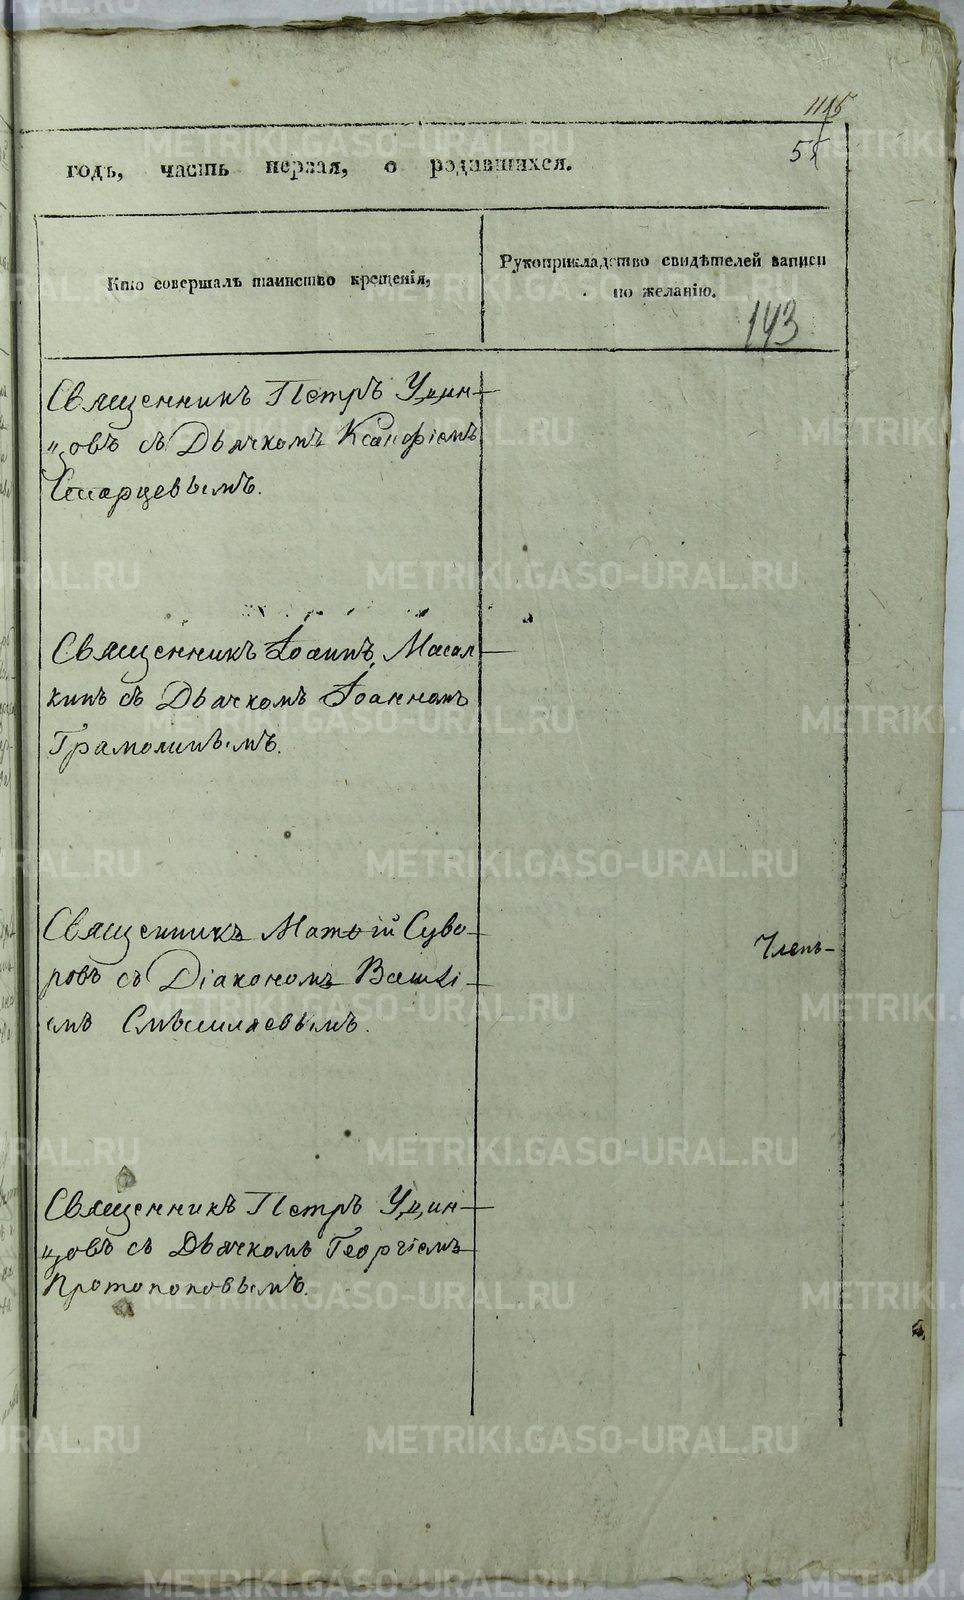 1115
5
годъ, часть первая, о родившихся.
Кто совершалъ таинство крещенія,
Рукоприкладство свидѣтелей записи
по желанію.
143
Священникъ Петръ Удин-
цовъ съ Дьячкомъ Ксанофіемъ
Священникъ Іоаннъ Масал
кинъ съ Дьячкомъ Іоанномъ
Грамолинымъ.
Священникъ Матѳій Суво-
ровъ съ Діакономъ Василі-
емъ Смѣшляевымъ.
Членъ-
Священникъ Петръ Удин-
цовъ съ Дьячкомъ Георгіемъ
Протопоповымъ.
METRIKI.GASO-URAL.RU